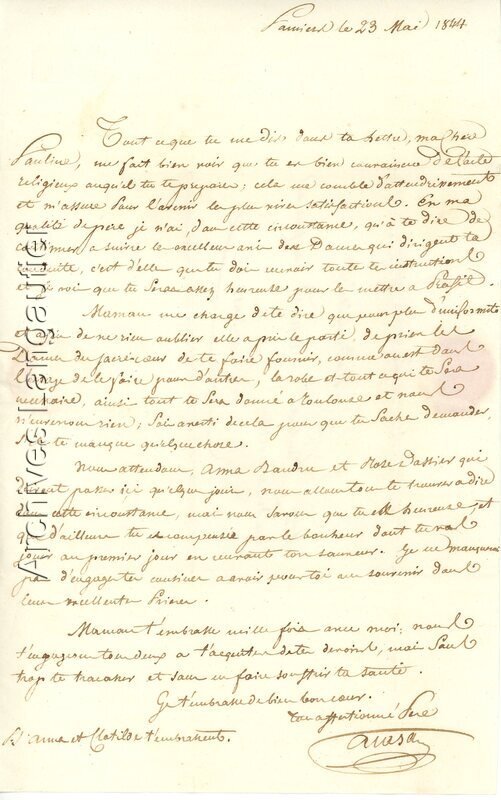 Pamiers le 23 Mai 1844
Tout ce que tu me dis dans ta lettre, ma chère
Pauline, me fait bien voir que tu es bien convaincue de l'acte
religieux auquel tu te prepare; cela me comble d'attendrissement
et m'assure pour l'avenir les plus vives satisfactions. En ma
qualité de père je n'ai, dans cette circonstance, qu'à te dire de
continuer à suivre les excellens avis des Dames qui dirigent ta
conduite, c'est d'elles que tu dois recevoir toutes les instructions
et je vois que tu seras assez heureuse pour les mettre à Profit.
Maman me charge de te dire que pour plus d'uniformité
et afin de ne rien oublier elle a pris le parti, de prier les
Dames du sacré cœur de te faire fournir, comme on est dans
l'usage de le faire pour d'autres, la robe et tout ce qui te sera
nécessaire, ainsi tout te sera donné à toulouse et nous
n'enverrons rien; sois avertie de cela pour que tu sache demander
s'il te manque quelque chose.
Nous attendons, Anna et Rose Dassier qui
doivent passer ici quelques jours, nous allons tous te trouver à dire
dans cette circonstance, mais nous savons que tu es heureuse, et
que d'ailleurs tu es compensée par le bonheur dont tu vas
jouir au premier jour en recevant ton sauveur. Je ne manquerai
pas d'engager tes cousines a avoir pour toi un souvenir dans
leurs excellentes Prières.
Maman t'embrasse mille fois avec moi; nous
t'engageons tous deux a t'acquitter de tes devoirs, mais sans
trop te tracasser et sans en faire souffrir ta santé.
Je t'embrasse de bien bon cœur.
ton affectionné Père
Anna et Clotilde t'embrassent.
Archives lel gautier